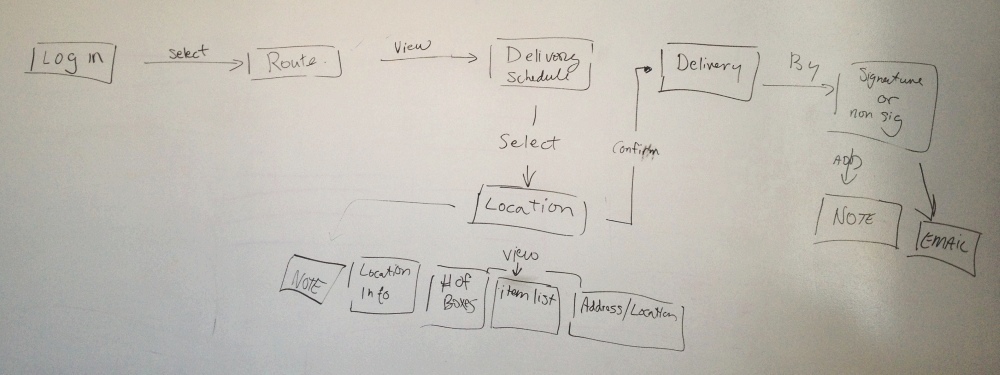 Log in
select
Route.
View
Delivery
Schedule
Select
Location
Confirm
Delivery
By
Signature
or
non sig
ADD
NOTE
EMAIL
View
NOTE
Location
Info
# of
Boxes
item list
Address/Location